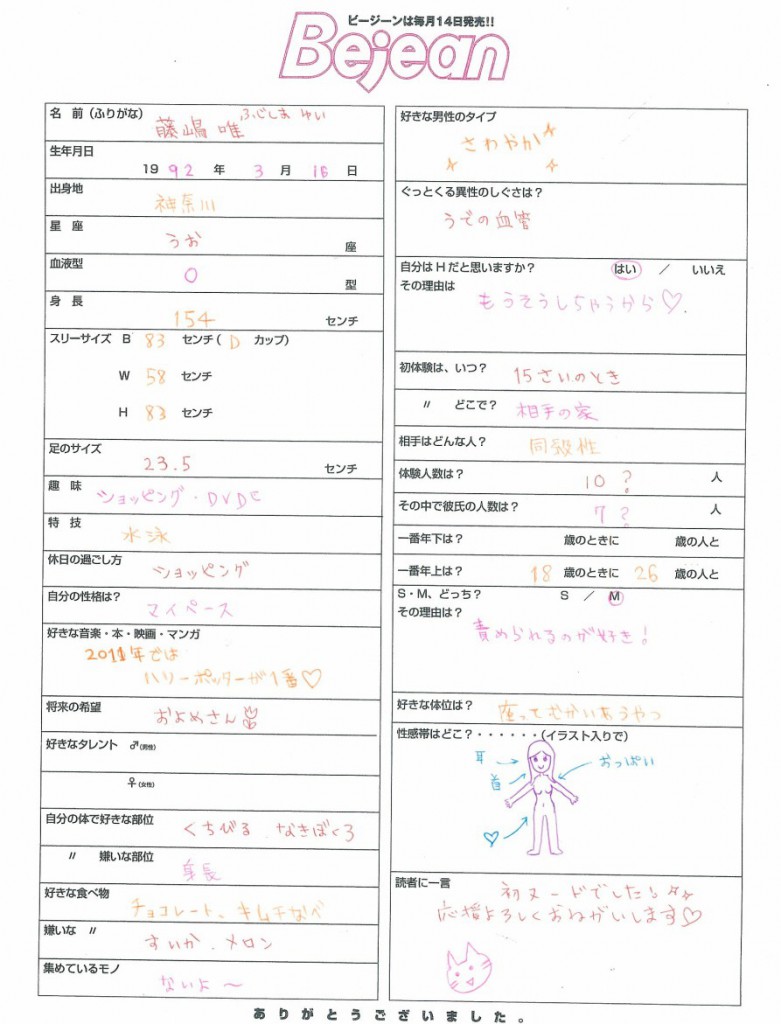 ビージーンは毎月14日発売!!
Bejean
名 前(ふりがな) 藤嶋 唯 ふじしま ゆい
生年月日
1992年 3月 16日
出身地 神奈川
星 座 うお 座
血液型 O 型
身 長 154 センチ
スリーサイズ B 83 センチ( D カップ)
W 58 センチ
H 83 センチ
足のサイズ 23.5 センチ
趣 味 ショッピング・DVD
特 技 水泳
休日の過ごし方 ショッピング
自分の性格は? マイペース
好きな音楽・本・映画・マンガ
2011年では
ハリーポッターが1番♡
将来の希望 およめさん
好きなタレント ♂(男性)
♀(女性)
自分の体で好きな部位 くちびる なきぼくろ
〃 嫌いな部位 身長
好きな食べ物 チョコレート、キムチなべ
嫌いな 〃 すいか、メロン
集めているモノ ないよ〜
好きな男性のタイプ
さわやか
ぐっとくる異性のしぐさは?
うでの血管
自分はHだと思いますか? はい / いいえ
その理由は
もうそうしちゃうから♡
体験人数は? 10? 人
その中で彼氏の人数は? 7? 人
一番年下は? 歳のときに 歳の人と
一番年上は? 18歳のときに 26歳の人と
S・M、どっち? S / M
その理由は?
責められるのが好き!
好きな体位は? 座ってむかいあうやつ
性感帯はどこ?・・・・・・(イラスト入りで)
耳
首
おっぱい
♡
読者に一言
初ヌードでした!
応援よろしくおねがいします♡
ありがとうございました。